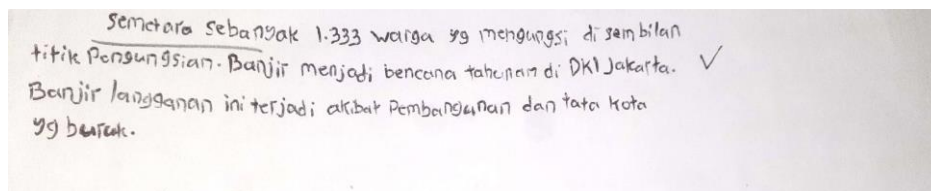 Semetara Sebanyak 1.333 warga yg mengungsi di sembilan
titik Pengungsian. Banjir menjadi bencana tahunan di DKI Jakarta. ✓
Banjir langganan ini terjadi akibat Pembangunan dan tata kota
yg buruk.